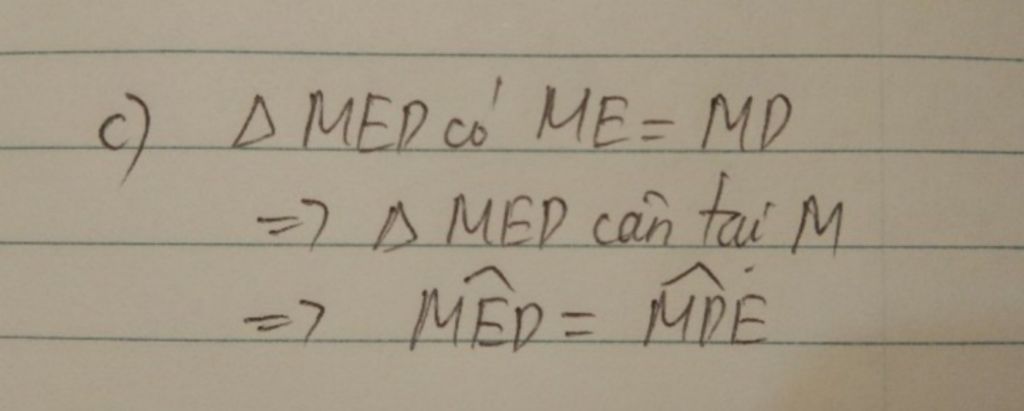 c) Δ MED có ME = MD
=> Δ MED cân tại M
=> M̂ÊD = M̂D̂E